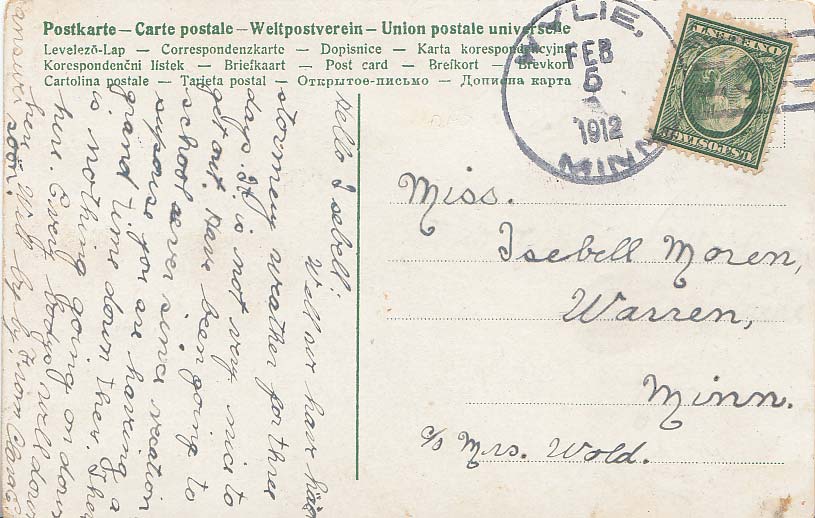 Postkarte — Carte postale — Weltpostverein — Union postale universelle
Levelező-Lap — Correspondenzkarte — Dopisnice — Karta korespondencyjna
Korespondenční lístek — Briefkaart — Post card — Brefkort — Brevkort
Cartolina postale — Tarjeta postal — Открытое-письмо — Дописна карта
LIE,
FEB
5
1912
MINN
U.S. POSTAGE
ONE CENT
Miss.
Isebell Moren,
Warren,
Minn.
c/o Mrs. Wold.
Hello Isebell:
Well we have had
stormeny weather for three
days. It is not very nice to
get out. Have been going to
school ever since vcation
supouse you are having a
grand time down ther. Ther
is nothing going on down
here. Every bodys well down
her. Will by by. From Clara
answer
soon.